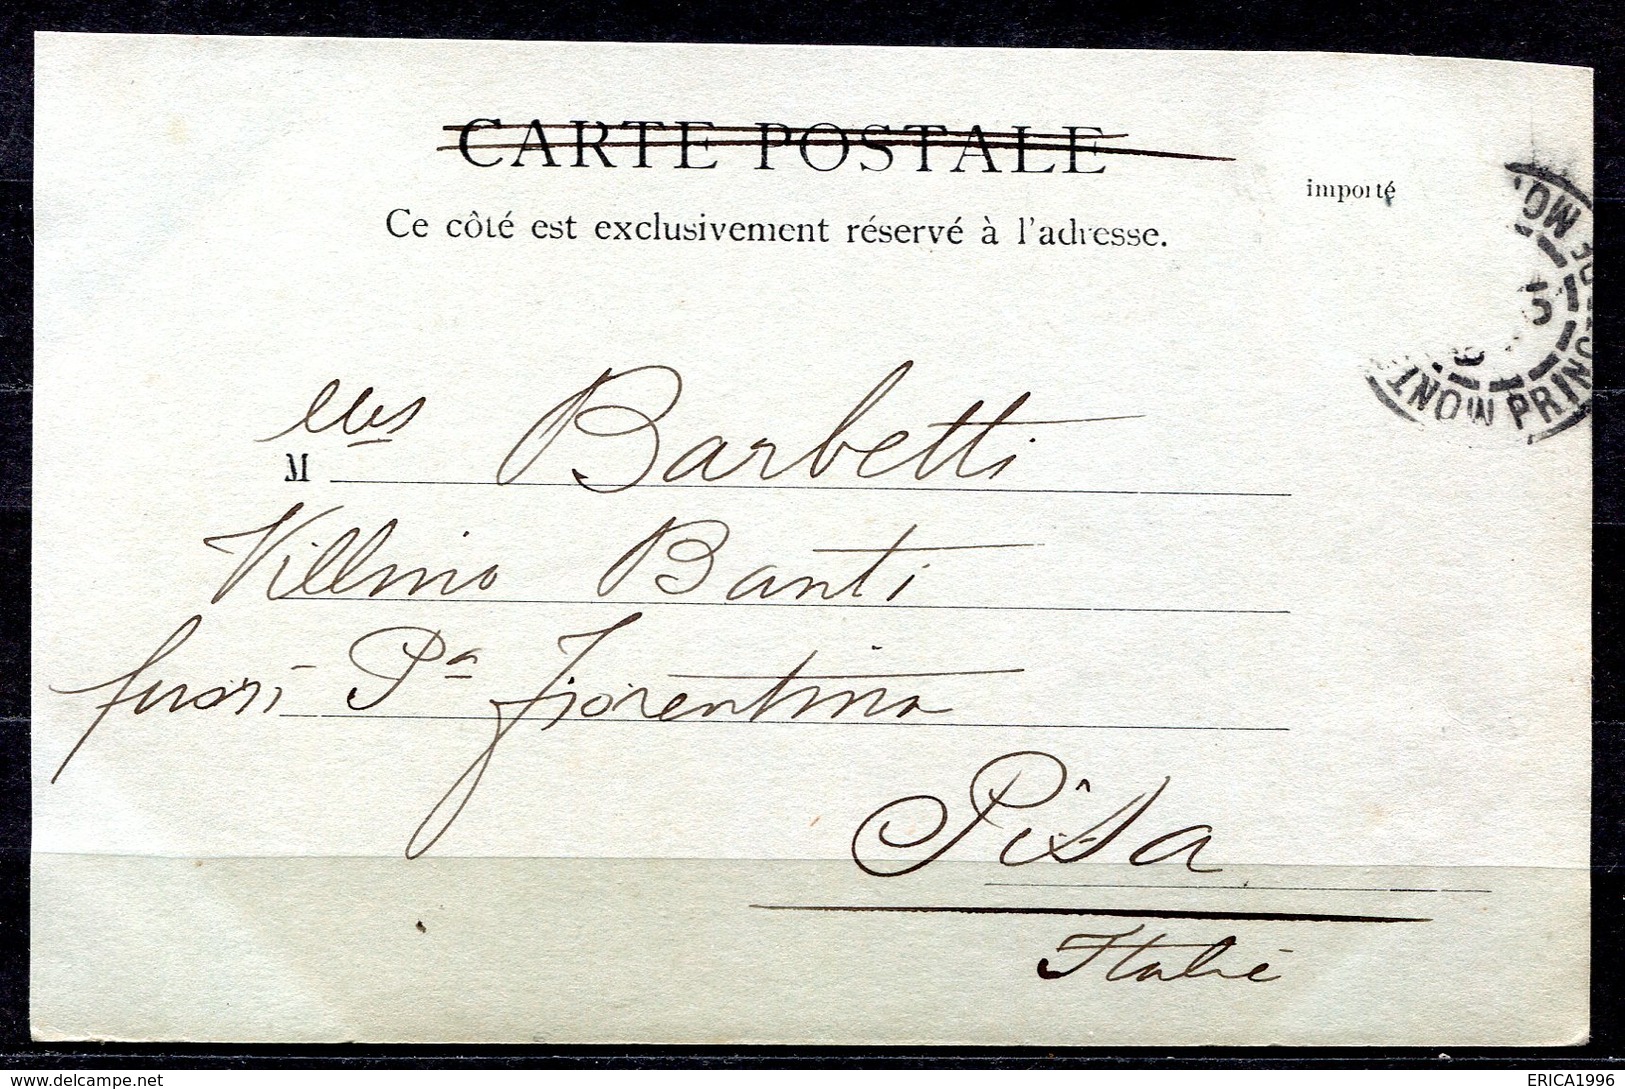 CARTE POSTALE
importé
Ce côté est exclusivement réservé à l'adresse.
M Barbetti
Villino Banti
fuori Pa Fiorentina
Pisa
Italie
MONT
PRINC
delcampe.net
ERICA1996